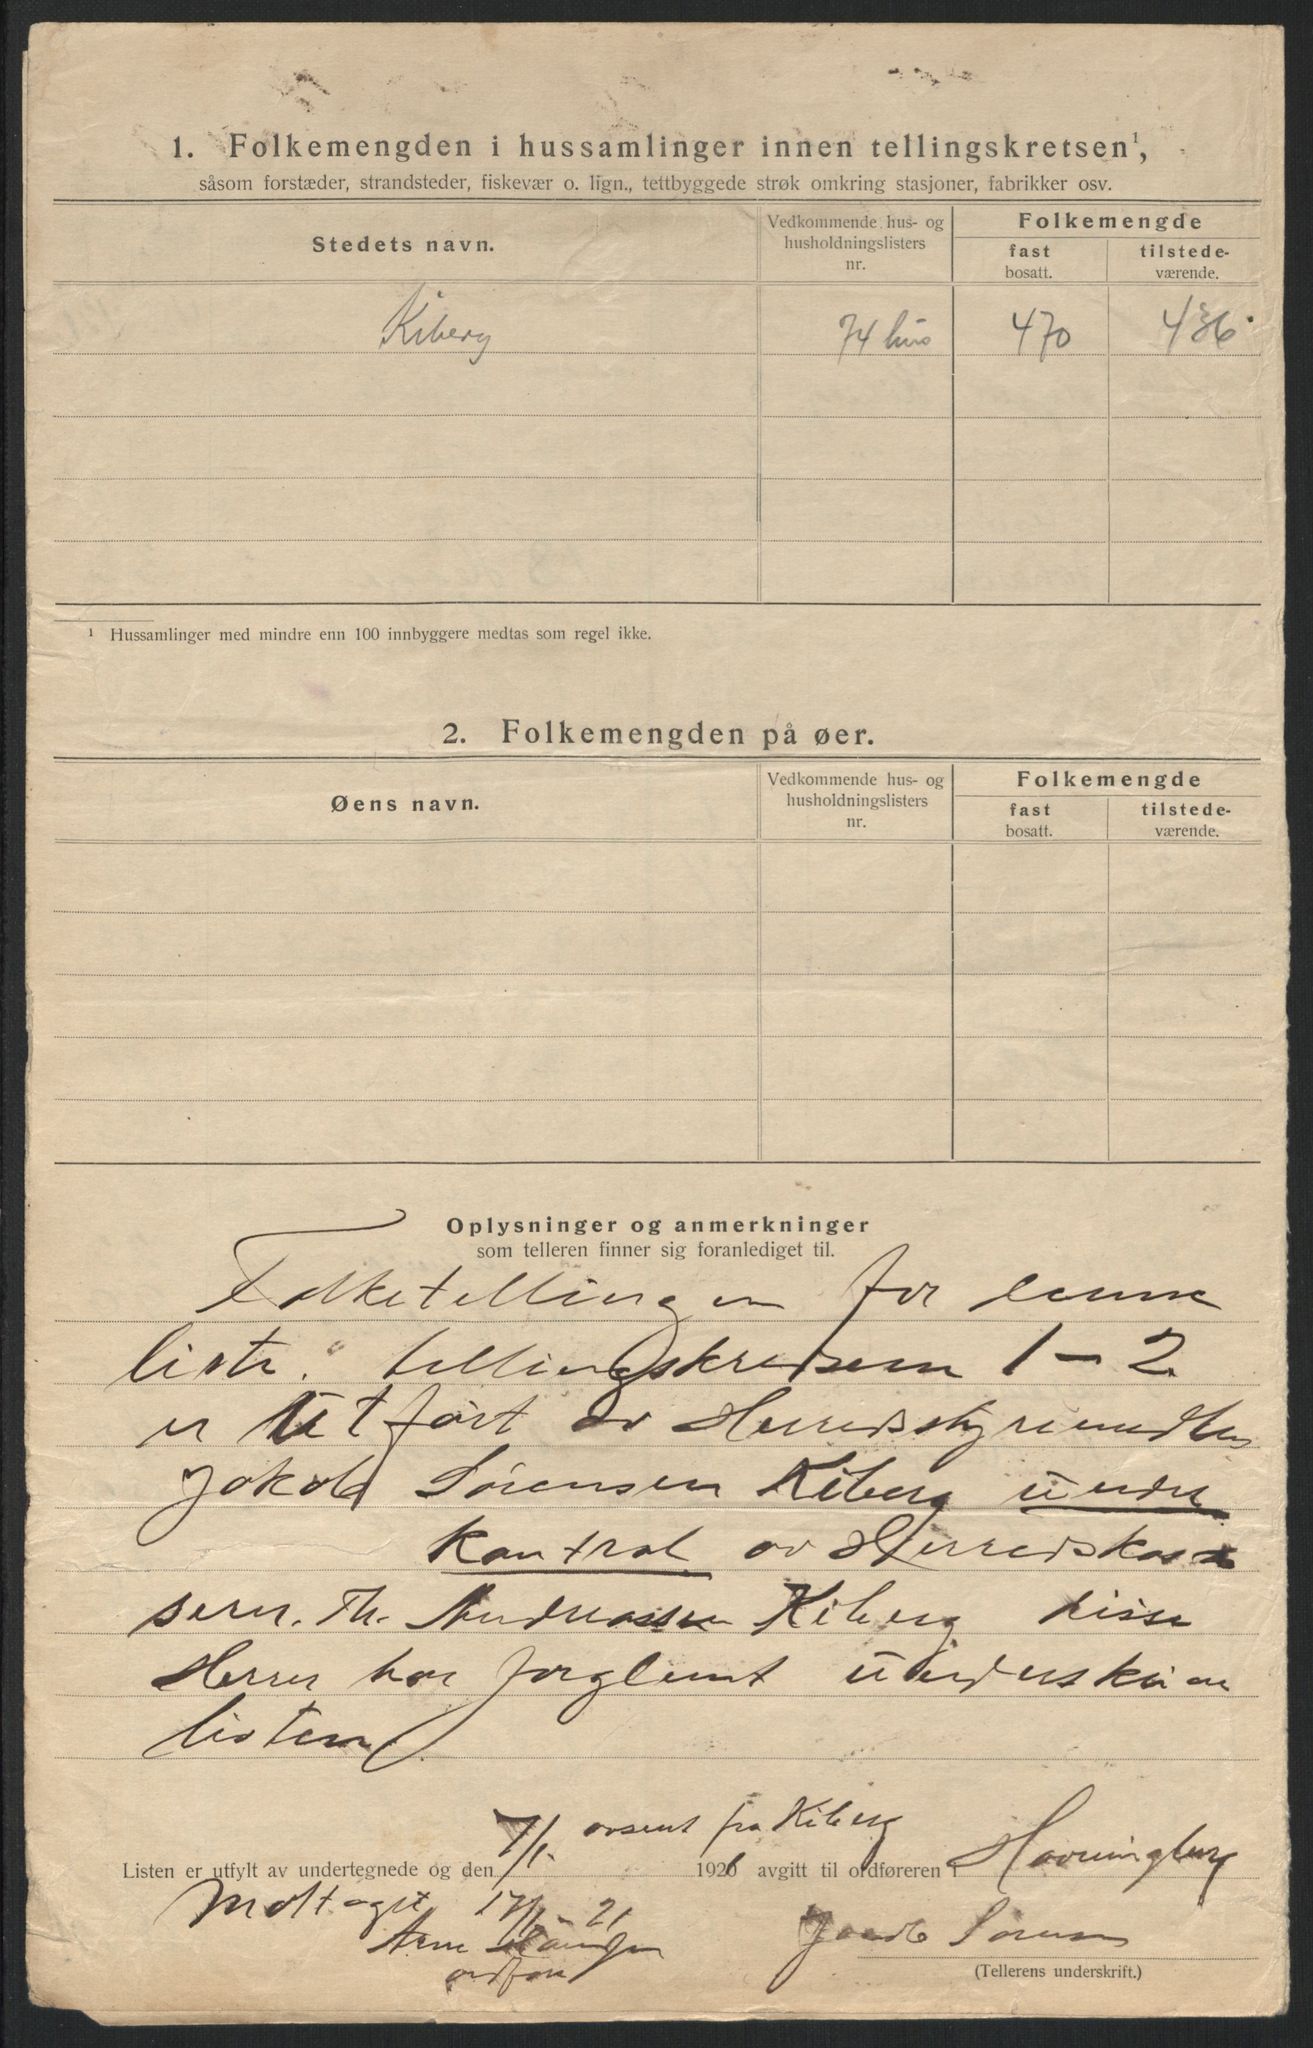 1. Folkemengden i hussamlinger innen tellingskretsen¹,
såsom forstæder, strandsteder, fiskevær o. lign., tettbyggede strøk omkring stasjoner, fabrikker osv.
Stedets navn.
Vedkommende hus- og
husholdningslisters
nr.
Folkemengde
fast
bosatt.
tilstede-
værende.
Kiberg 74 hus 470 436
¹ Hussamlinger med mindre enn 100 innbyggere medtas som regel ikke.
2. Folkemengden på øer.
Øens navn.
Vedkommende hus- og
husholdningslisters
nr.
Folkemengde
fast
bosatt.
tilstede-
værende.
Oplysninger og anmerkninger
som telleren finner sig foranlediget til.
Folketellingen for denne
liste. tellingskredsen 1-2
er utført av Herredsstyremedlem
Jakob Sørensen Kiberg under
kontrol av Herredskas
serer. Th. Andreassen Kiberg disse
Herrer har forglemt underskrive
listen
7/1. avsent fra Kiberg
Listen er utfylt av undertegnede og den 1921 avgitt til ordføreren i Havningberg
Mottaget 17/1-21
Arne
ordfører
Jacob Sørensen
(Tellerens underskrift.)